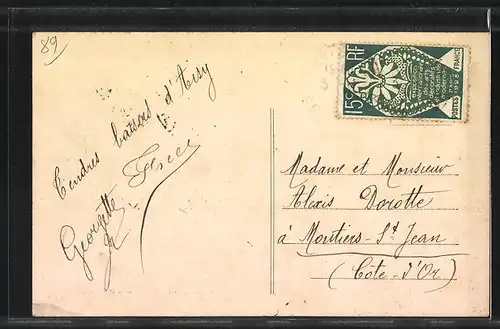 89
Tendres baisers d'Aisy
Georgette
15c RF
POSTES FRANCE
Madame et Monsieur
Alexis Dorotte
à Moutiers-St Jean
(Côte-d'Or)